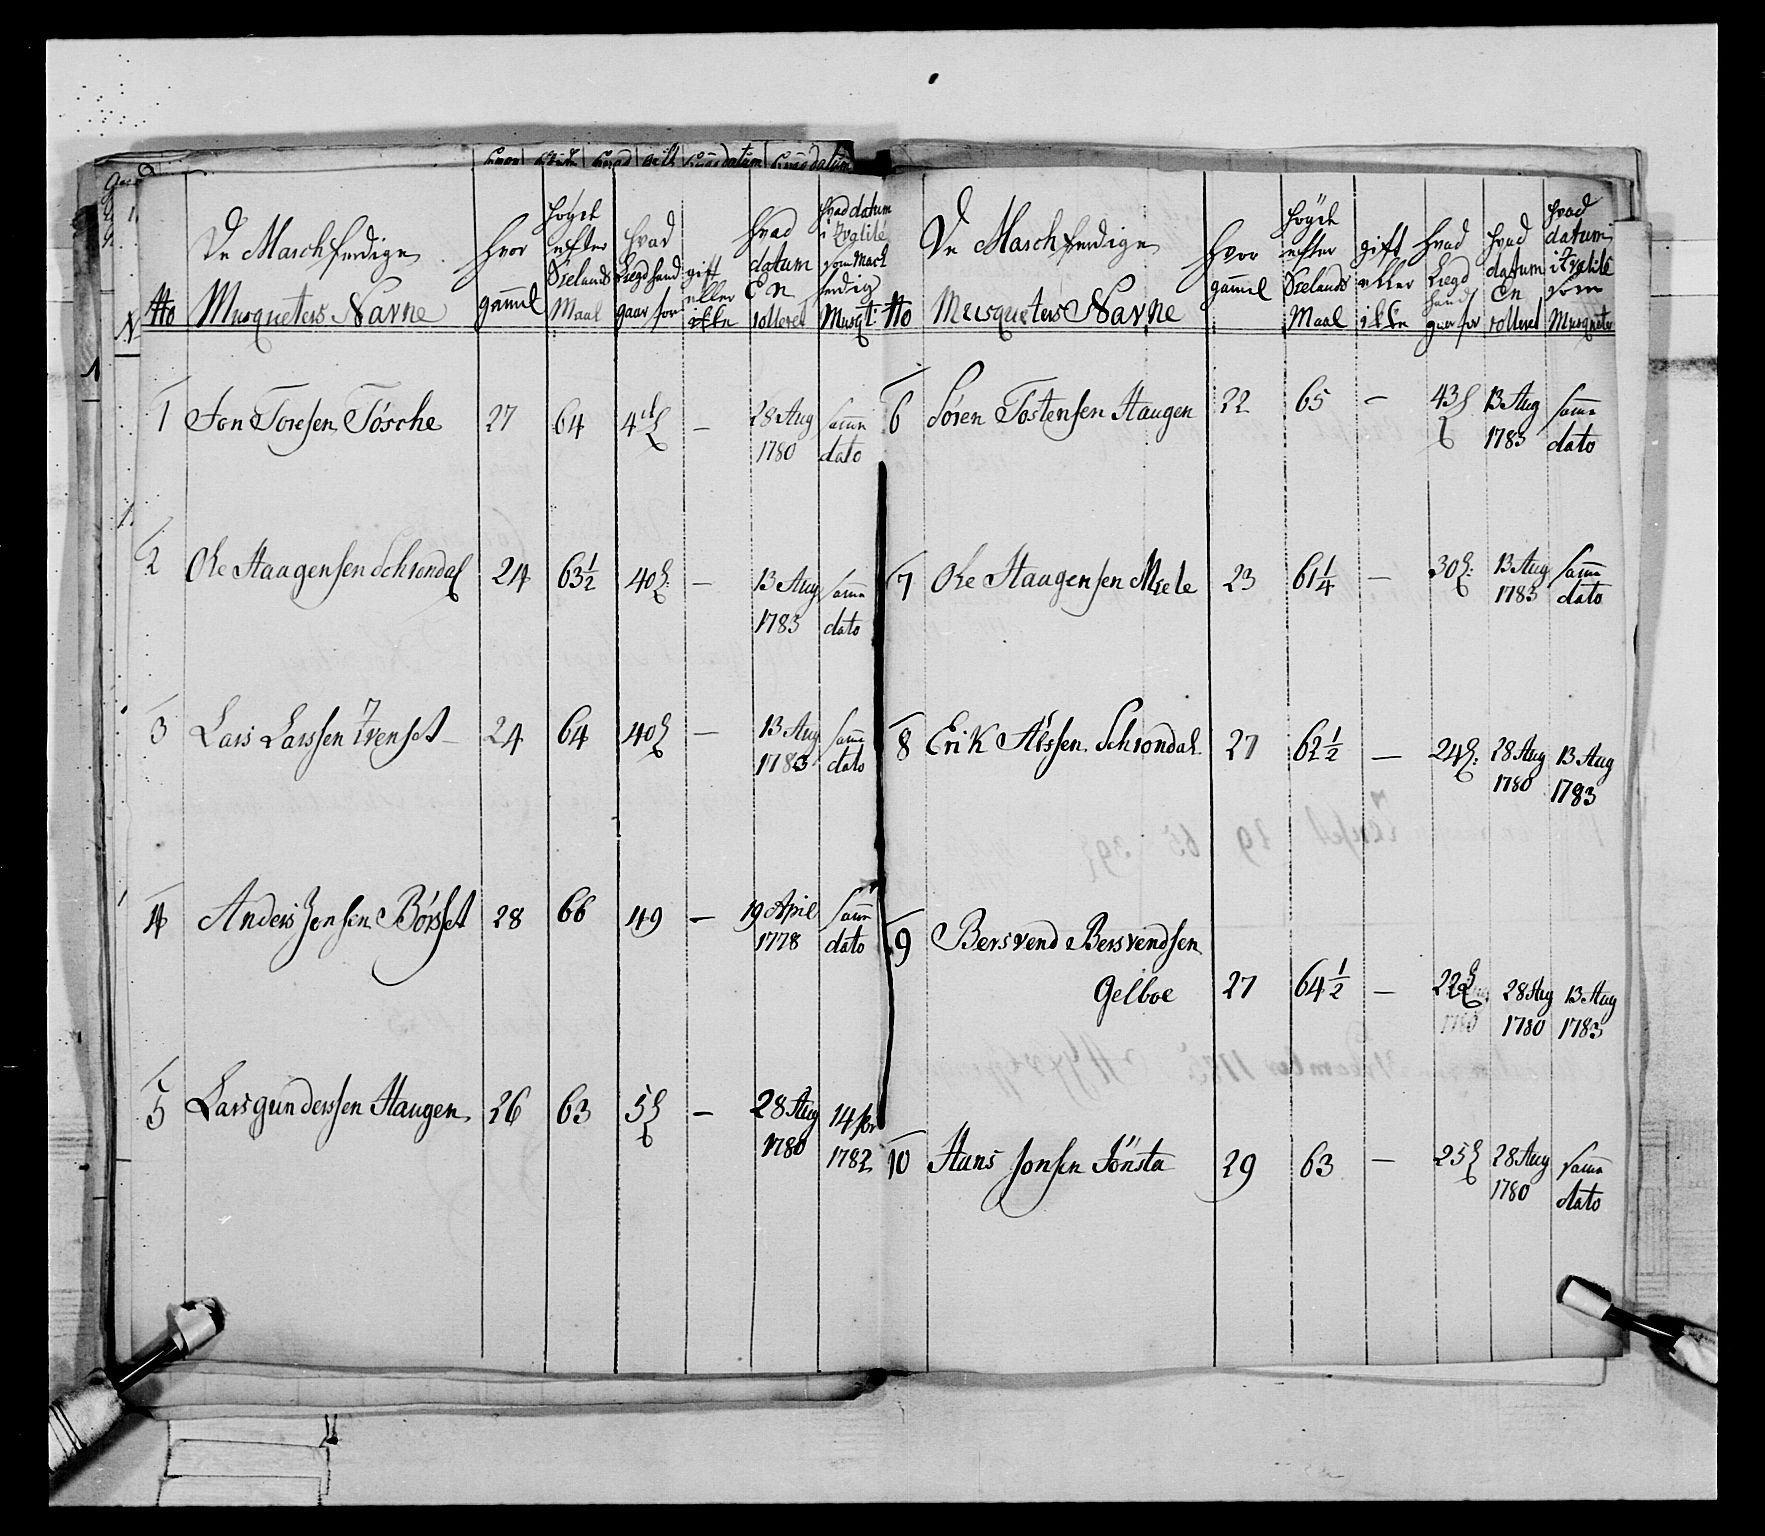 De Marchferdige
Musqueters Navne
No
Hvor
gammel
Høyde
efter
Sielands
Maal
Hvad
Liegd hand
gaar for
gift
eller
ikke
Hvad
datum
En
rolleret
Hvad datum
i Qvalité
som Mach
ferdig
Musqt:
1 Jon Toresen Tösche 27 64 4de — 28 Aug samme
1780 dato
2 Ole Haagensen Schrondal 24 63½ 40 — 13 Aug samme
1783 dato
3 Lars Larssen Ivenset 24 64 40 — 13 Aug samme
1783 dato
4 Anders Jonsen Börset 28 66 49 — 19 April samme
1778 dato
5 Lars gunderssen Haugen 26 63 5 — 28 Aug 14 for
1780 1782
De Marchferdige
Musqueters Navne
No
Hvor
gammel
Høyde
efter
Sielands
Maal
gift
eller
ikke
Hvad
Liegd
hand
gaar for
Hvad
datum
En
rolleret
Hvad
datum
i Qvalité
som
Musqueter
6 Sören Tostensen Haugen 22 65 — 43 13 Aug samme
1783 dato
7 Ole Haagensen Miele 23 61¼ — 30 13 Aug samme
1783 dato
8 Erik Alssen Schrondal 27 62½ — 24 28 Aug 13 Aug
1780 1783
9 Bersvend Bersvendsen
Gelboe 27 64½ — 22 28 Aug 13 Aug
1780 1783
10 Hans Jonsen Jönsta 29 63 — 25 28 Aug samme
1780 dato